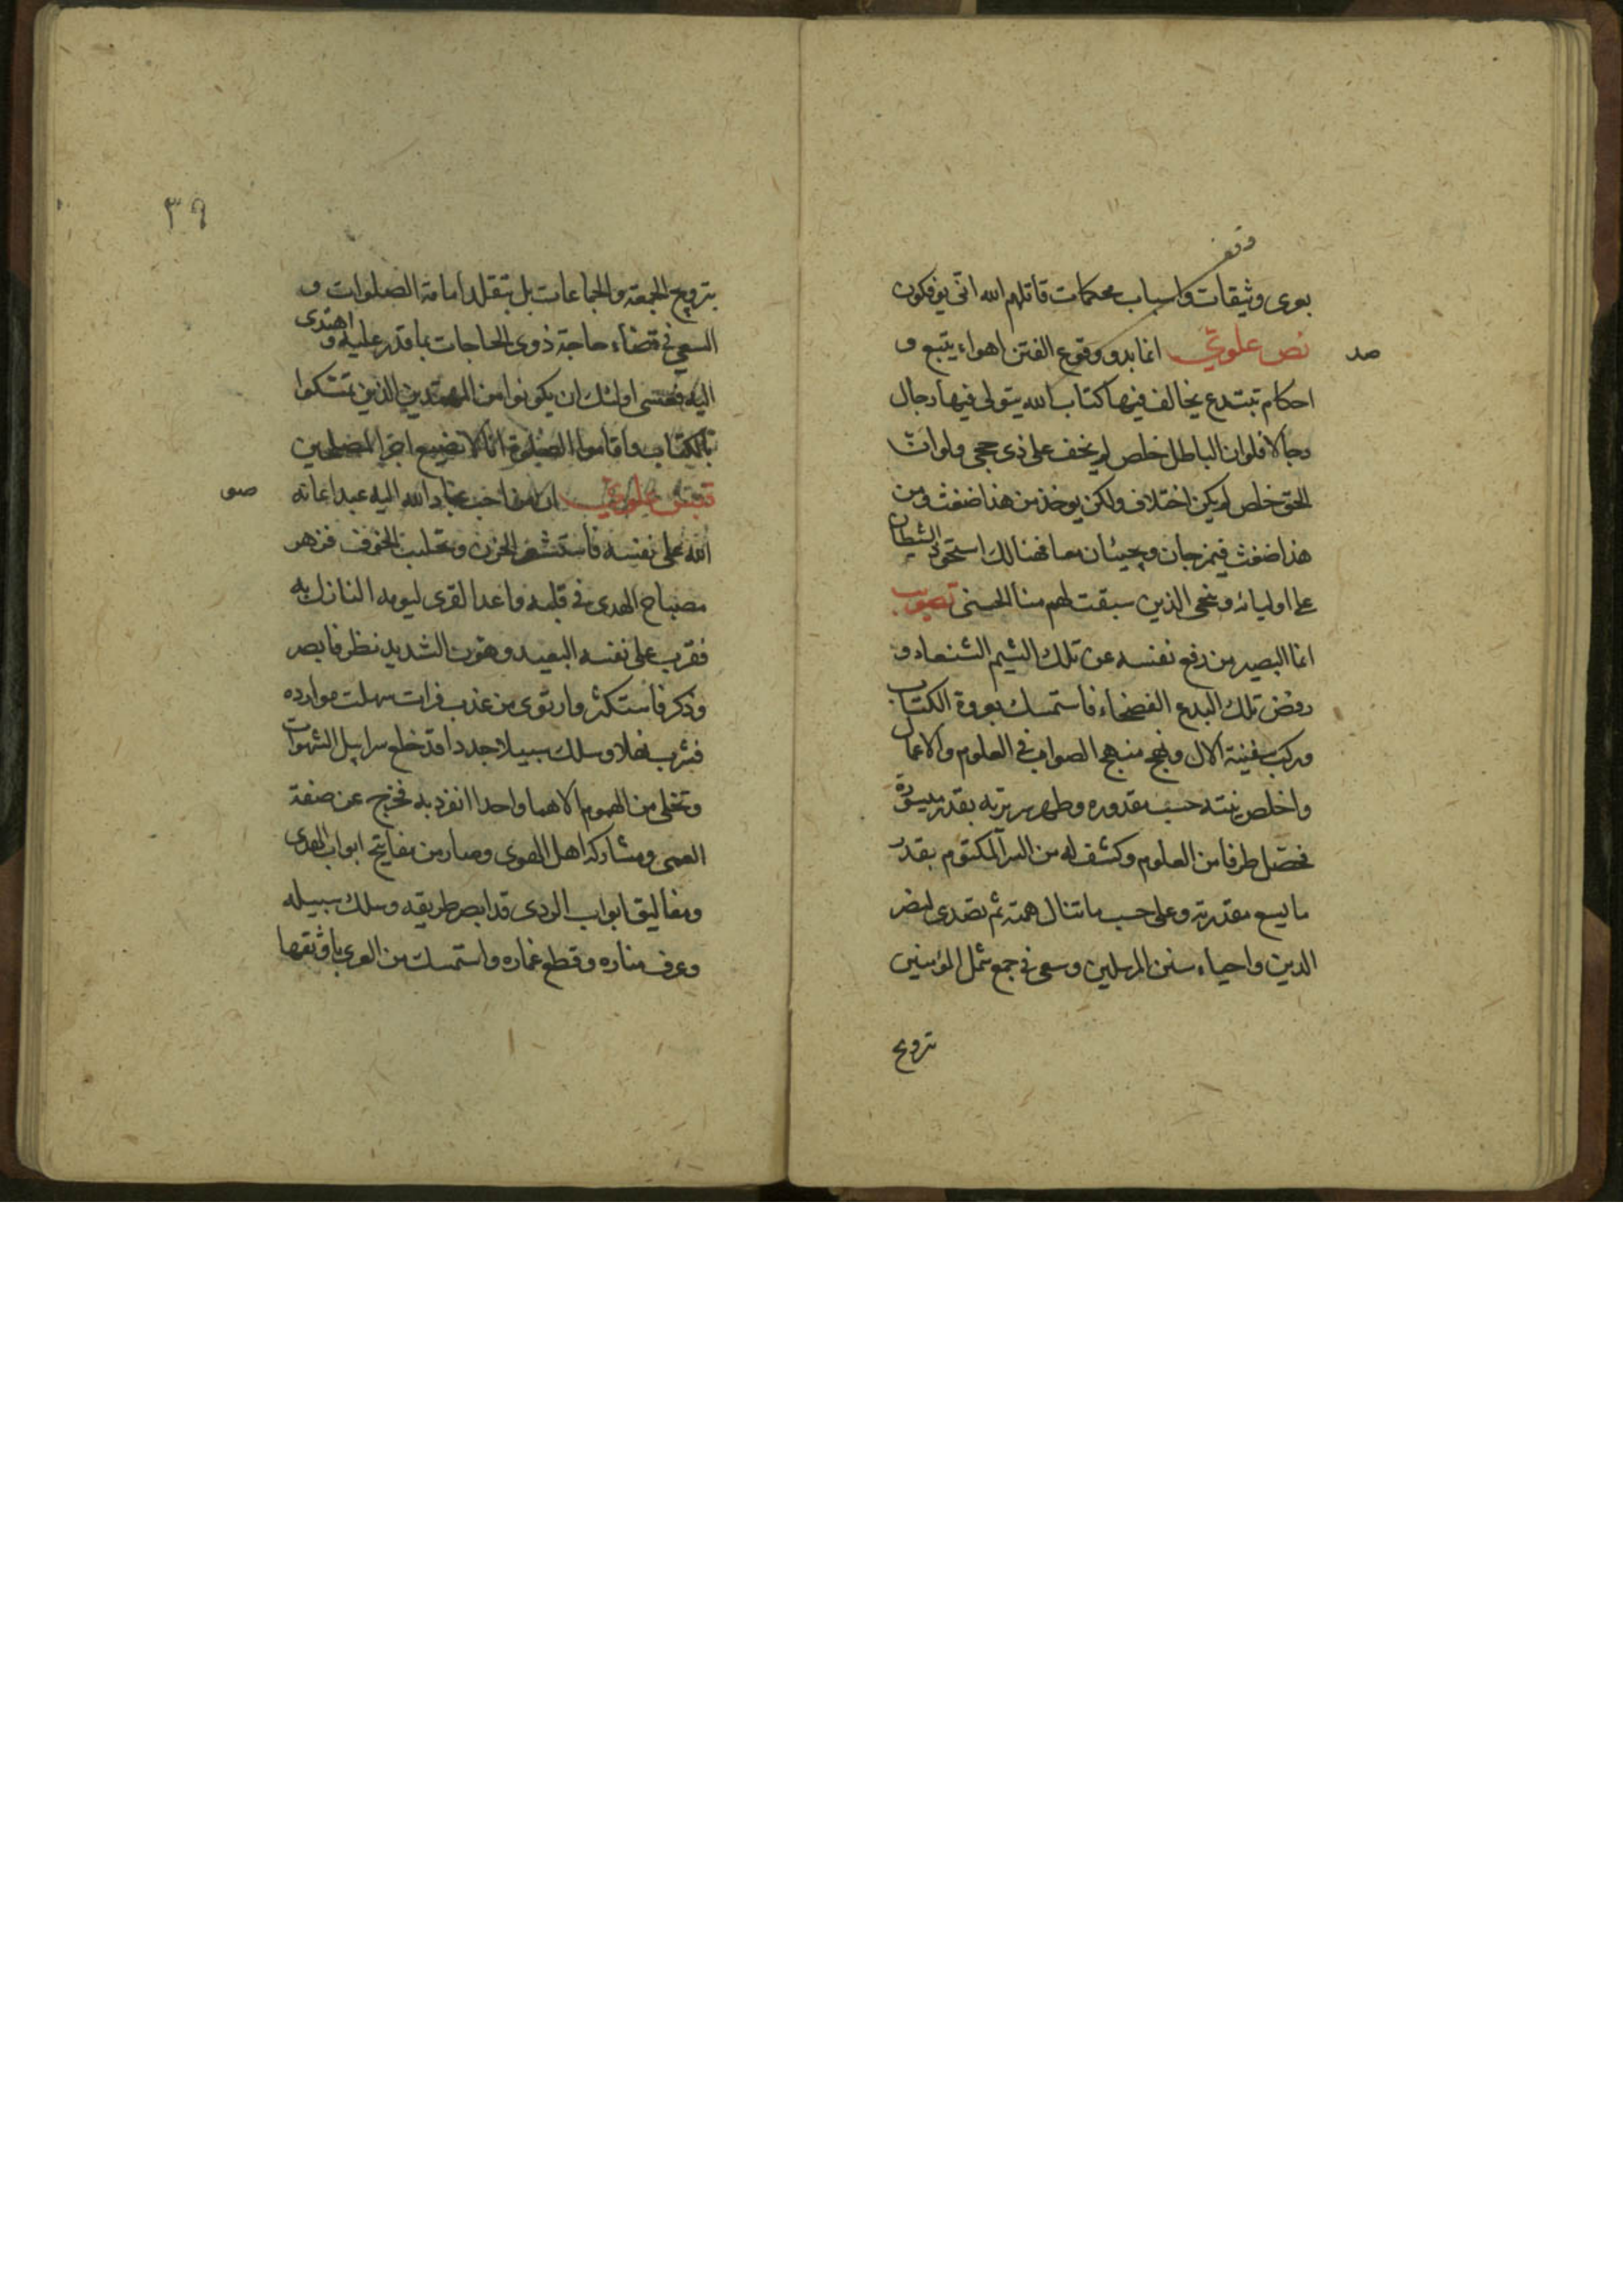 وقف
بعرى وثيقات واسباب محكمات قاتلهم الله انى يؤفكون
صد
نص علوي انما بدو وقوع الفتن اهواء يتبع و
احكام تبتدع يخالف فيها كتاب الله يتولى فيها رجال
رجالا فلو ان الباطل خلص لم يخف على ذى حجى ولو ان
الحق خلص لم يكن اختلاف ولكن يوخذ من هذا ضغث ومن
هذا ضغث فيمزجان ويجيئان معا فهنالك استحوذ الشيطان
على اوليائه ونجى الذين سبقت لهم منا الحسنى تصويب
انما البصير من رفع نفسه عن تلك الشيم الشنعاء و
رفض تلك البدع الفضحاء فاستمسك بعروة الكتاب
وركب سفينة الال ونهج منهج الصواب في العلوم والاعمال
واخلص نيته حسب مقدوره وطهر سريرته بقدر ميسوره
فحصل طرفا من العلوم وكشف له من السر المكتوم بقدر
ما يسع مقدرته وعلى حسب ما تنال همته ثم تصدى لنصر
الدين واحياء سنن المرسلين وسعى في جمع شمل المؤمنين
بترويج
٣٩
بترويج الجمعة والجماعات بل بتقلد امامة الصلوات و
السعي في قضاء حاجة ذوى الحاجات بما قدر عليه و اهتدى
اليه فعسى اولئك ان يكونوا من المهتدين الذين تمسكوا
بالكتاب واقاموا الصلوة انا لا نضيع اجر المصلحين
صو
نص علوي ان من احب عباد الله اليه عبدا اعانه
الله على نفسه فاستشعر الحزن وتجلبب الخوف فزهر
مصباح الهدى في قلبه واعد القرى ليومه النازل به
فقرب على نفسه البعيد وهون الشديد نظر فابصر
وذكر فاستكثر وارتوى من عذب فرات سهلت موارده
فشرب نهلا وسلك سبيلا جددا قد خلع سرابيل الشهوات
وتخلى من الهموم الا هما واحدا انفرد به فخرج عن صفة
العمى ومشاركة اهل الهوى وصار من مفاتيح ابواب الهدى
ومغاليق ابواب الردى قد ابصر طريقه وسلك سبيله
وعرف مناره وقطع غماره واستمسك من العرى باوثقها